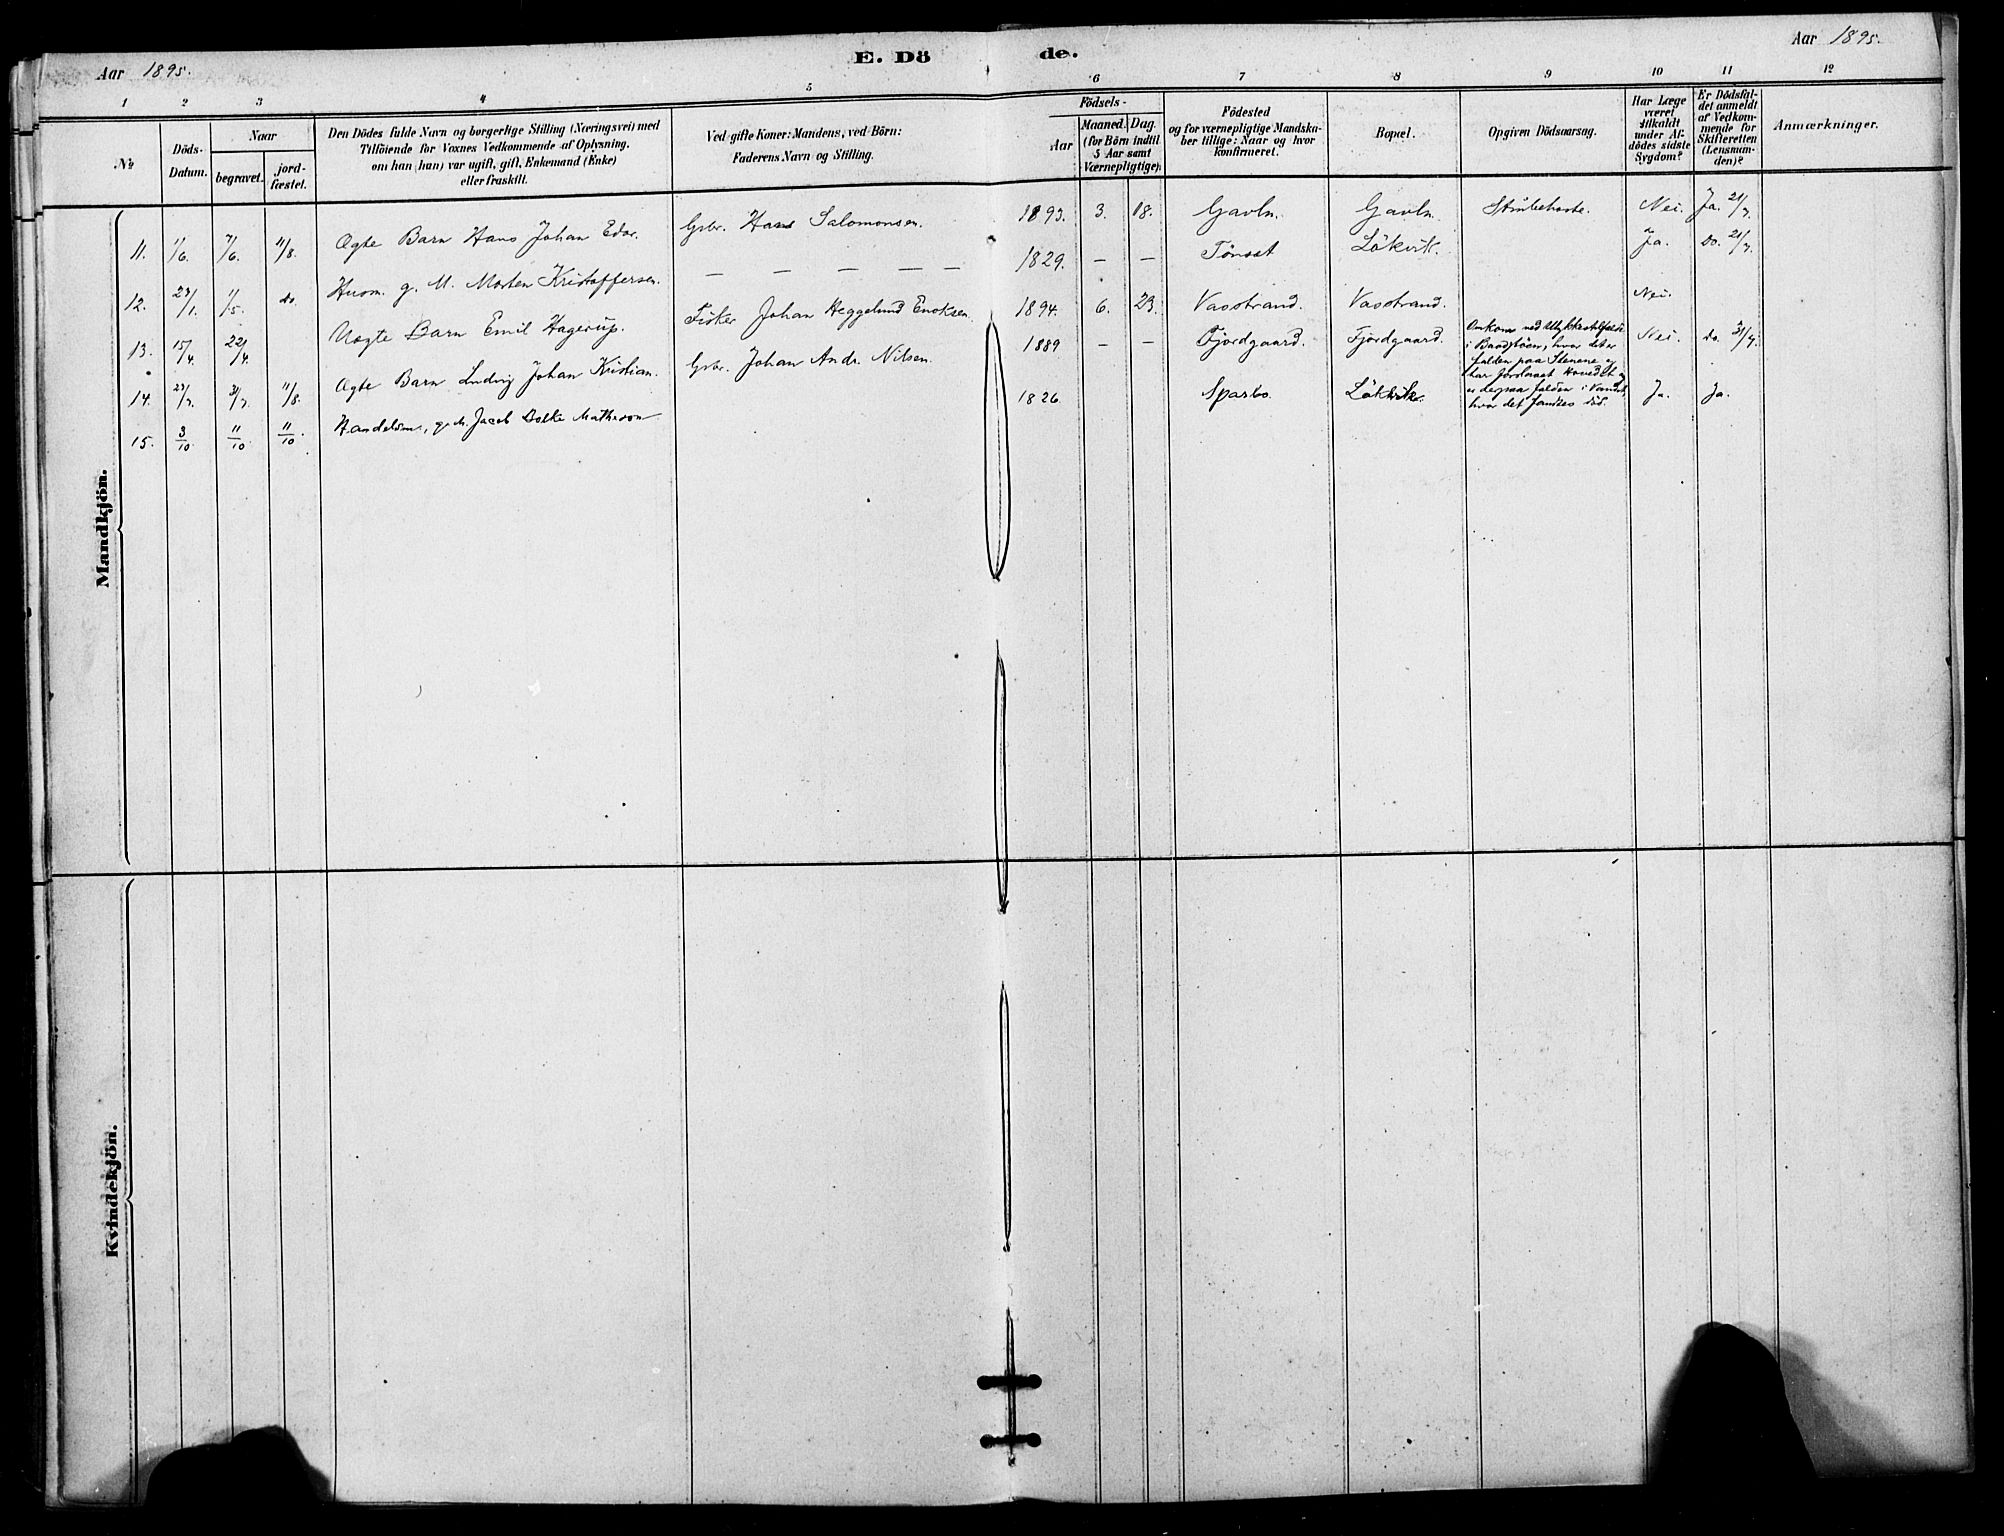 Aar 1895.
E. Dö de.
Aar 1895.
1 2 3 4 5 6 7 8 9 10 11 12
No
Döds-
Datum.
Naar
begravet.
jord-
fæstet.
Den Dödes fulde Navn og borgerlige Stilling (Næringsvei) med
Tilföiende for Voxnes Vedkommende af Oplysning,
om han (hun) var ugift, gift, Enkemand (Enke)
eller fraskilt.
Ved gifte Koner: Mandens, ved Börn:
Faderens Navn og Stilling.
Födsels-
Aar
Maaned. Dag.
(for Börn indtil
5 Aar samt
Værnepligtige).
Födested
og for værnepligtige Mandska-
ber tillige: Naar og hvor
konfirmeret.
Bopæl.
Opgiven Dödsaarsag.
Har Læge
været
tilkaldt
under Af-
dödes sidste
Sygdom?
Er Dödsfal-
det anmeldt
af Vedkom-
mende for
Skifteretten
(Lensman-
den)?
Anmærkninger.
Mandkjön.
11. 1/6. 7/6. 11/8. Ægte Barn Hans Johan Edv. Gbr. Hans Salomonsen. 1893. 3. 18. Gavln. Gavln. Strubehoste. Nei. Ja. 21/7.
12. 1/5. do. Husm. g. M. Morten Kristoffersen. — — — — — 1829. — — Tönset Lökvik. Ja. do. 21/7.
13. 15/4. 22/4. Uægte Barn Emil Hagerup. Fisker Johan Heggelund Enoksen. 1894. 6. 23. Vasstrand. Vasstrand. Nei.
14. 31/7. 11/8. Ægte Barn Ludvig Johan Kristian. Gbr. Johan Andr. Nilsen. 1889 — — Fjordgaard. Fjordgaard. Nei. do.
Omkom ved Ulykkestilfælde
i Baadstöen, hvor det er
falden paa Stenene og
har forslaaet Hovedet og
er derpaa falden i Vandet,
hvor det fandtes död.
15. 3/10 11/10 11/10 Handelsm., g. M. Jacob Matheson 1826. Sparbo. Lökvik. Ja. Ja.
Kvindekjön.